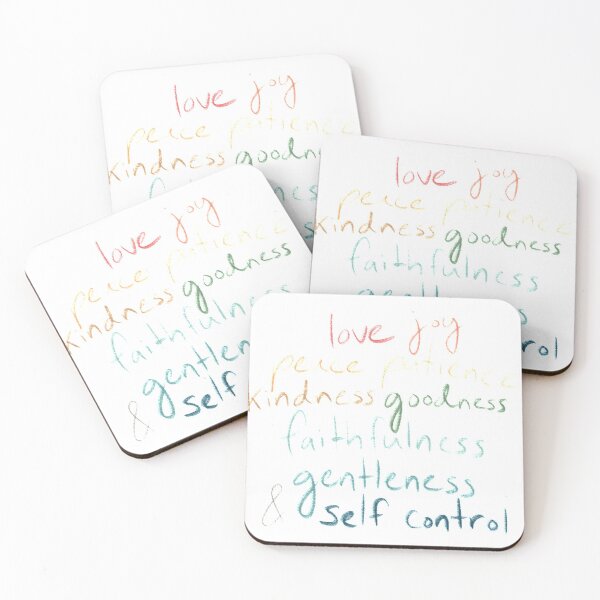 love joy
peace patience
kindness goodne
love joy
peace patience
kindness goodness
faithfulness
love joy
peace patience
kindness goodness
faithfulness
gentlen
& self
love joy
peace patience
kindness goodness
faithfulness
gentleness
& self control